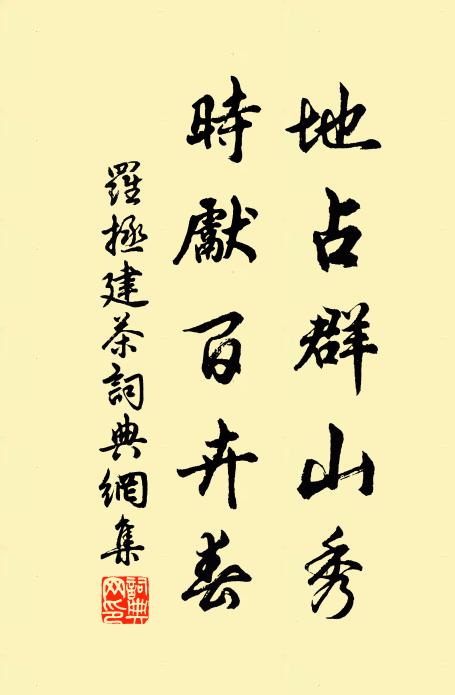 地占群山秀
時獻百卉春
羅極建茶詞典網集
詞典網印